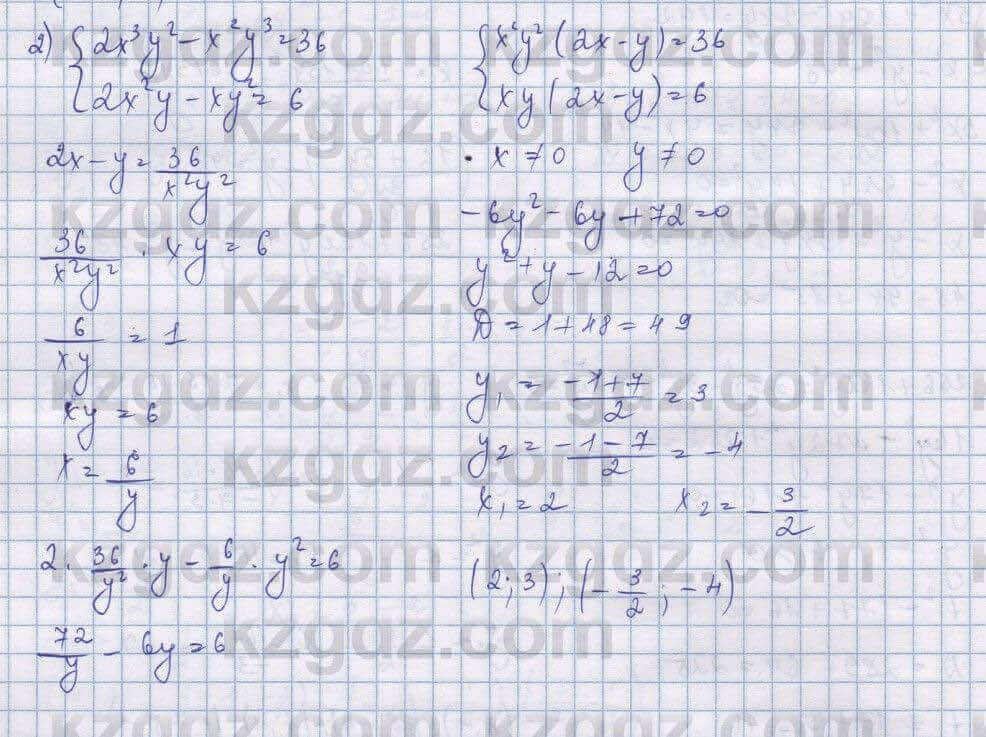 2) { 2x³y² - x²y³ = 36
2x²y - xy² = 6
2x - y = 36/x²y²
36/x²y² · xy = 6
6/xy = 1
xy = 6
x = 6/y
2 · 36/y² · y - 6/y · y² = 6
72/y - 6y = 6
{ x²y² (2x - y) = 36
xy (2x - y) = 6
x ≠ 0 y ≠ 0
-6y² - 6y + 72 = 0
y² + y - 12 = 0
D = 1 + 48 = 49
y₁ = -1+7/2 = 3
y₂ = -1-7/2 = -4
x₁ = 2 x₂ = -3/2
(2; 3); (-3/2; -4)
kzgdz.com